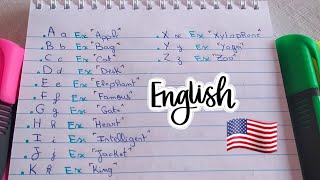 . A a Ex "Appl"
. B b Ex "Bag"
. C c Ex "Cat"
. D d Ex "Desk"
. E e Ex "Elephant"
. F f Ex "Famous"
. G g Ex "Gate"
. H h Ex "Heart"
. I i Ex "Intelligent"
. J j Ex "Jacket"
. K k Ex "King"
. X x Ex "Xylophone"
. Y y Ex
. Z z Ex "Zoo"
English